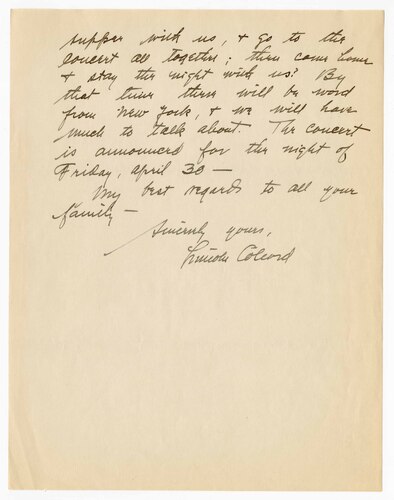 supper with us, & go to the
concert all together; then come home
& stay the night with us? By
that time there will be word
from New York, & we will have
much to talk about. The concert
is announced for the night of
Friday, April 30 —
My best regards to all your
family —
Sincerely yours,
Lincoln Colcord